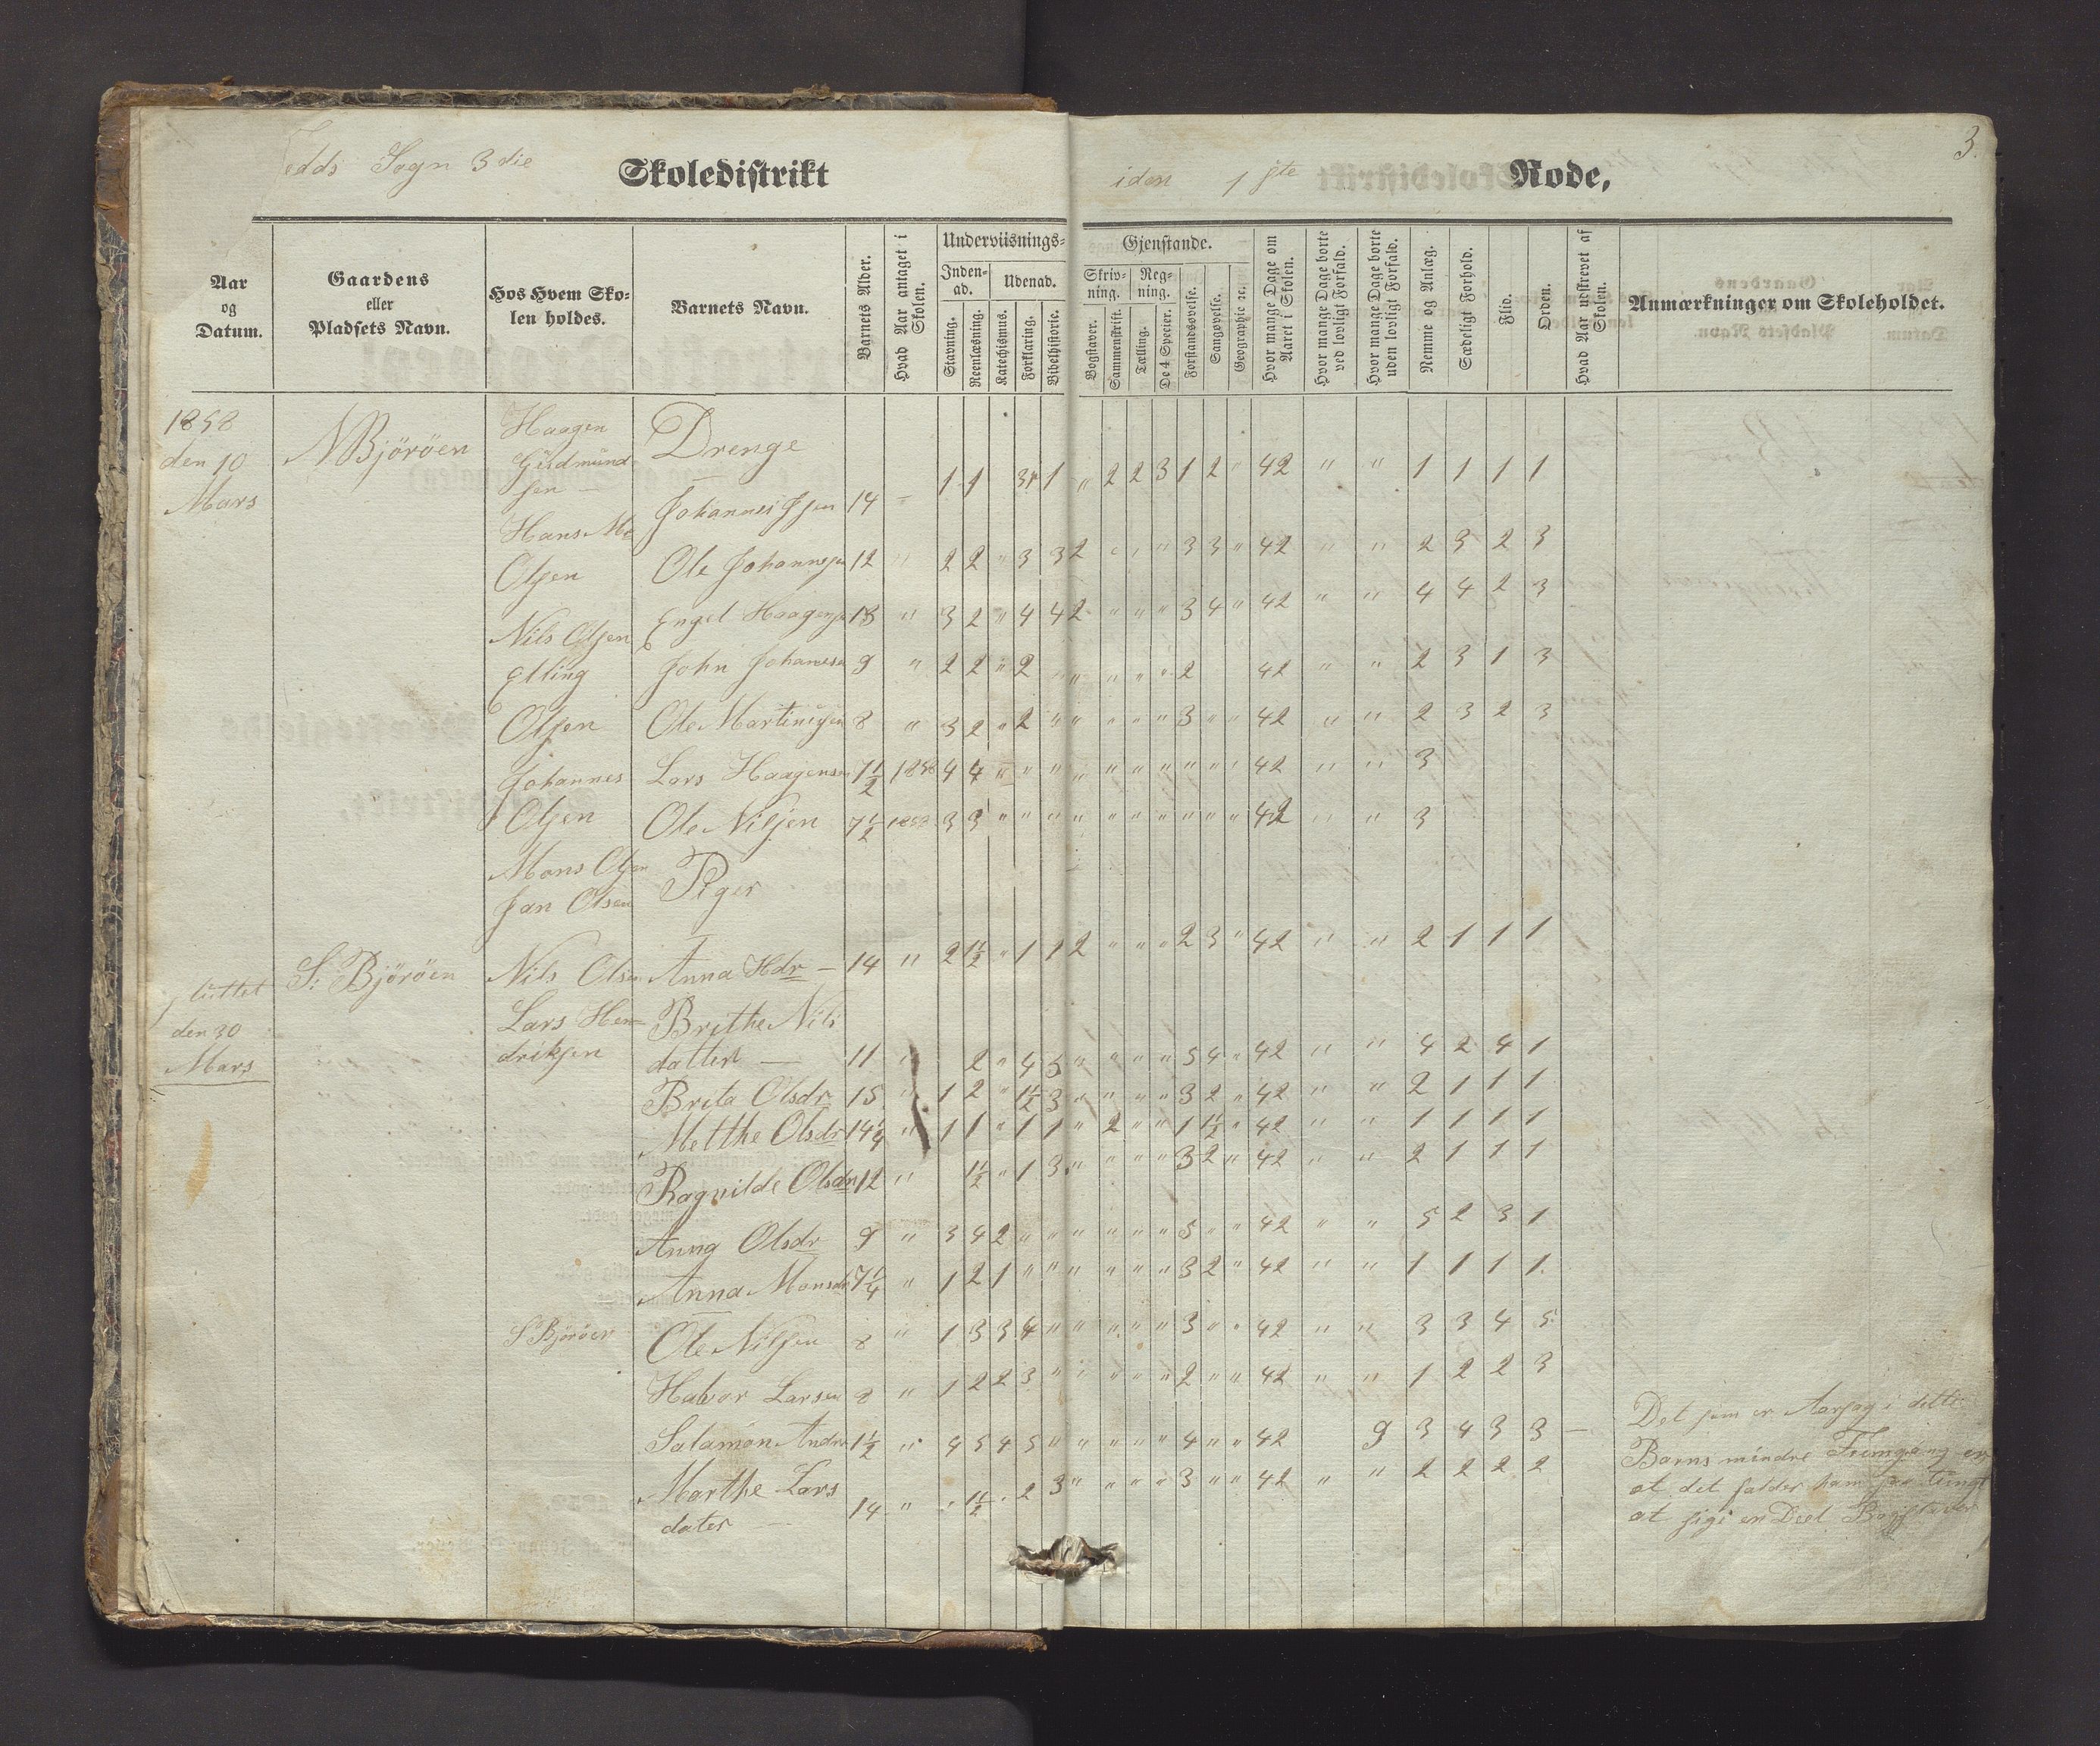 3.
Sogn 3die Skoledistrikt iden 1ste Rode,
Aar og Datum.
Gaardens eller Pladsets Navn.
Hos Hvem Skolen holdes.
Barnets Navn.
Barnets Alder.
Hvad Aar antaget i Skolen.
Underviisnings-Gjenstande.
Inden-ad.
Udenad.
Stavning.
Reenlæsning.
Katechismus.
Forklaring.
Bibelhistorie.
Skriv-ning.
Reg-ning.
Bogstaver.
Sammenskrift.
Tælling.
De 4 Species.
Forstandsøvelse.
Sangøvelse.
Geographie ec.
Hvor mange Dage om Aaret i Skolen.
Hvor mange Dage borte ved lovligt Forfald.
Hvor mange Dage borte uden lovligt Forfald.
Nemme og Anlæg.
Sædeligt Forhold.
Flid.
Orden.
Hvad Aar udskrevet af Skolen.
Anmærkninger om Skoleholdet.
1858
den 10
Mars
N Björöen
Haagen
Gudmund
sen
Hans Mo
Olsen
Nils Olsen
Elling
Olsen
Johannes
Olsen
Mons Olsen
Jan Olsen
Drenge
Johannes Jsen 14 1 1 3 1 " 2 2 3 1 2 " 42 " " 1 1 1 1
Ole Johannesen 12 " 2 2 " 3 3 2 " " " 3 3 " 42 " " 2 3 2 3
Engel Haagensen 13 " 3 2 " 4 4 2 " " " 3 4 " 42 " " 4 4 2 3
John Johanesen 9 " 2 2 " 2 " " " " " 2 42 " " 2 3 1 3
Ole Martinusen 8 " 3 2 " 2 " " " " " 3 " " 42 " " 2 3 2 3
Lars Haagensen 7 1/2 1858 4 4 " " " " " " " " " " 42 " " 3
Ole Nilsen 7 1/2 1858 3 3 " " " " " " " " " " 42 " " 3
Piger
S: Björöen
sluttet
den 30
Mars
Nils Olsen
Lars Hen
driksen
Anna Hdr 14 " 2 1 1/2 " 1 1 2 " " " 2 3 " 42 " " 2 1 1 1
Brithe Nils
datter 11 " 2 " 4 3 " " " " 5 4 " 42 " " 4 2 4 1
Brita Olsdr 15 " 1 2 " 1 1/2 3 " " " " 3 2 " 42 " " 2 1 1 1
Metthe Olsdr 14 1/4 " 1 1 " 1 1 " 2 " " 1 1 1/2 " 42 " " 1 1 1 1
Ragnilde Olsdr 12 " 1 1/2 " 1 3 " " " " 3 2 " 42 " " 2 1 1 1
Anna Olsdr 9 " 3 4 2 " " " " " " 5 " " 42 " " 5 2 3 1
Anna Monsdr 7 1/4 " 1 2 1 " " " " " " 3 2 " 42 " " 1 1 1 1
S Björöen
Ole Nilsen 8 " 1 3 3 4 " " " " " 3 " " 42 " " 3 3 4 5
Halvor Larsen 8 " 1 2 2 3 " " " " " 2 " " 42 " " 1 2 2 3
Salamon Andr 1 1/2 " 4 5 4 5 " " " " " 4 " " 42 9 3 4 3 3 —
Marthe Lars
dater 14 " " 1 1/2 " 2 3 " " " " 3 " " 42 " " 2 2 2 2
Det som er Aarsag i dette
Barns mindre Fremgang er
at det falder ham saa tungt
at sige en Deel Bogstaver